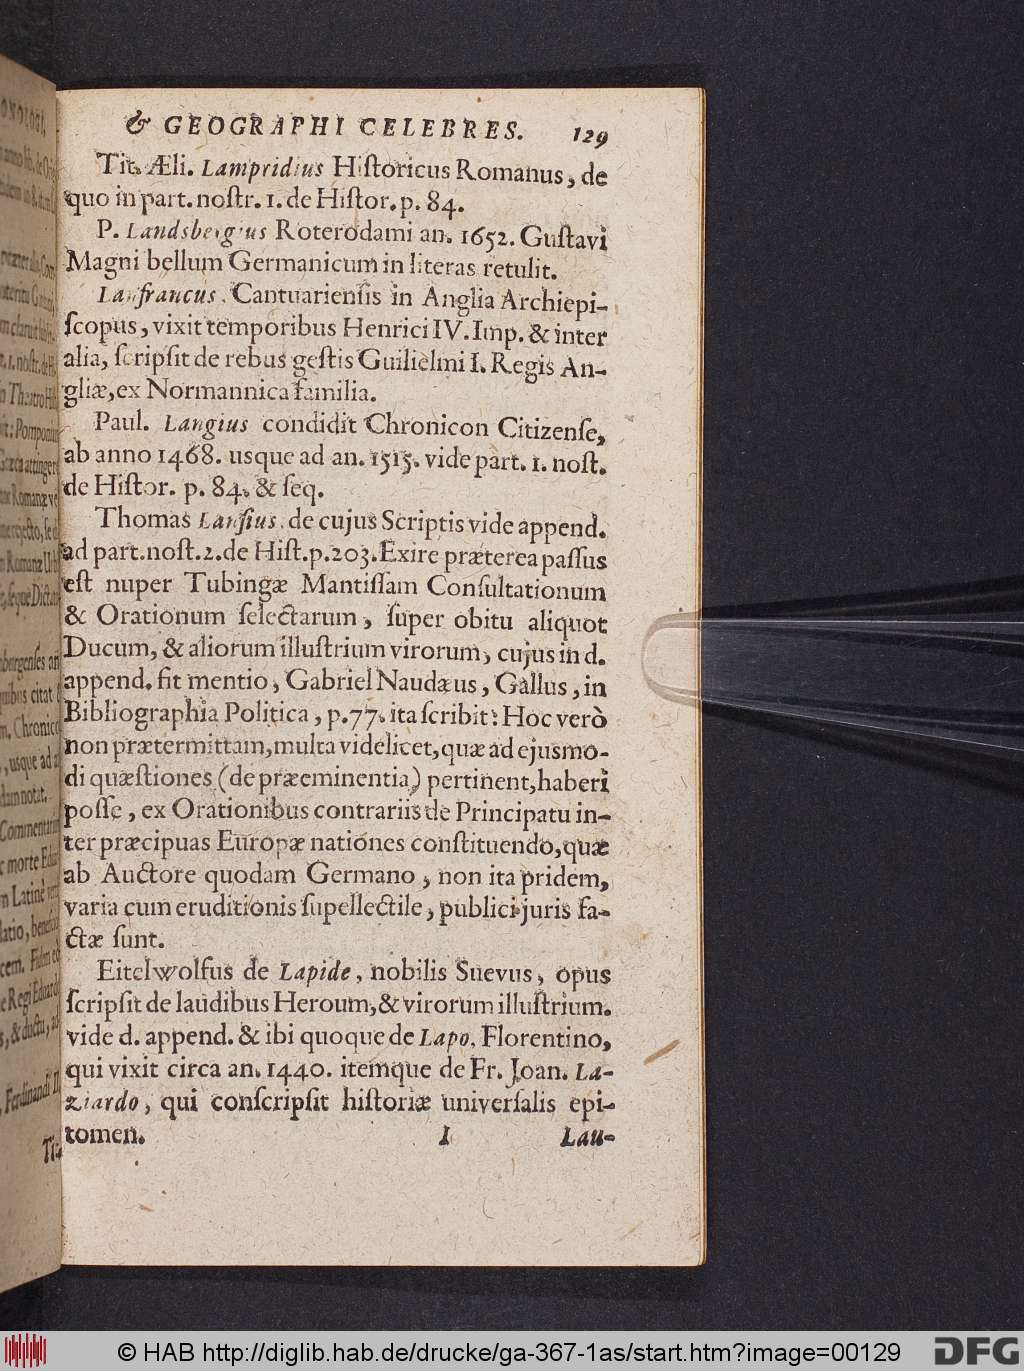 & GEOGRAPHI CELEBRES. 129
Tit. Æli. Lampridius Hiſtoricus Romanus, de
quo in part. noſtr. 1. de Hiſtor. p. 84.
P. Landsbergius Roterodami an. 1652. Guſtavi
Magni bellum Germanicum in literas retulit.
Lanfrancus, Cantuarienſis in Anglia Archiepi-
ſcopus, vixit temporibus Henrici IV. Imp. & inter
alia, ſcripſit de rebus geſtis Guilielmi I. Regis An-
gliæ, ex Normannica familia.
Paul. Langius condidit Chronicon Citizenſe,
ab anno 1468. usque ad an. 1515. vide part. 1. noſt.
de Hiſtor. p. 84. & ſeq.
Thomas Lanſius, de cujus Scriptis vide append.
ad part. noſt. 2. de Hiſt. p. 203. Exire præterea paſſus
eſt nuper Tubingæ Mantiſſam Conſultationum
& Orationum ſelectarum, ſuper obitu aliquot
Ducum, & aliorum illuſtrium virorum, cujus in d.
append. fit mentio, Gabriel Naudæus, Gallus, in
Bibliographia Politica, p. 77. ita ſcribit: Hoc verò
non prætermittam, multa videlicet, quæ ad ejusmo-
di quæſtiones (de præeminentia) pertinent, haberi
poſſe, ex Orationibus contrariis de Principatu in-
ter præcipuas Europæ nationes conſtituendo, quæ
ab Auctore quodam Germano, non ita pridem,
varia cum eruditionis ſupellectile, publici juris fa-
ctæ ſunt.
Eitelwolfus de Lapide, nobilis Suevus, opus
ſcripſit de laudibus Heroum, & virorum illuſtrium.
vide d. append. & ibi quoque de Lapo, Florentino,
qui vixit circa an. 1440. itemque de Fr. Joan. La-
ziardo, qui conſcripſit hiſtoriæ univerſalis epi-
tomen. I Lau-
© HAB http://diglib.hab.de/drucke/ga-367-1as/start.htm?image=00129
DFG